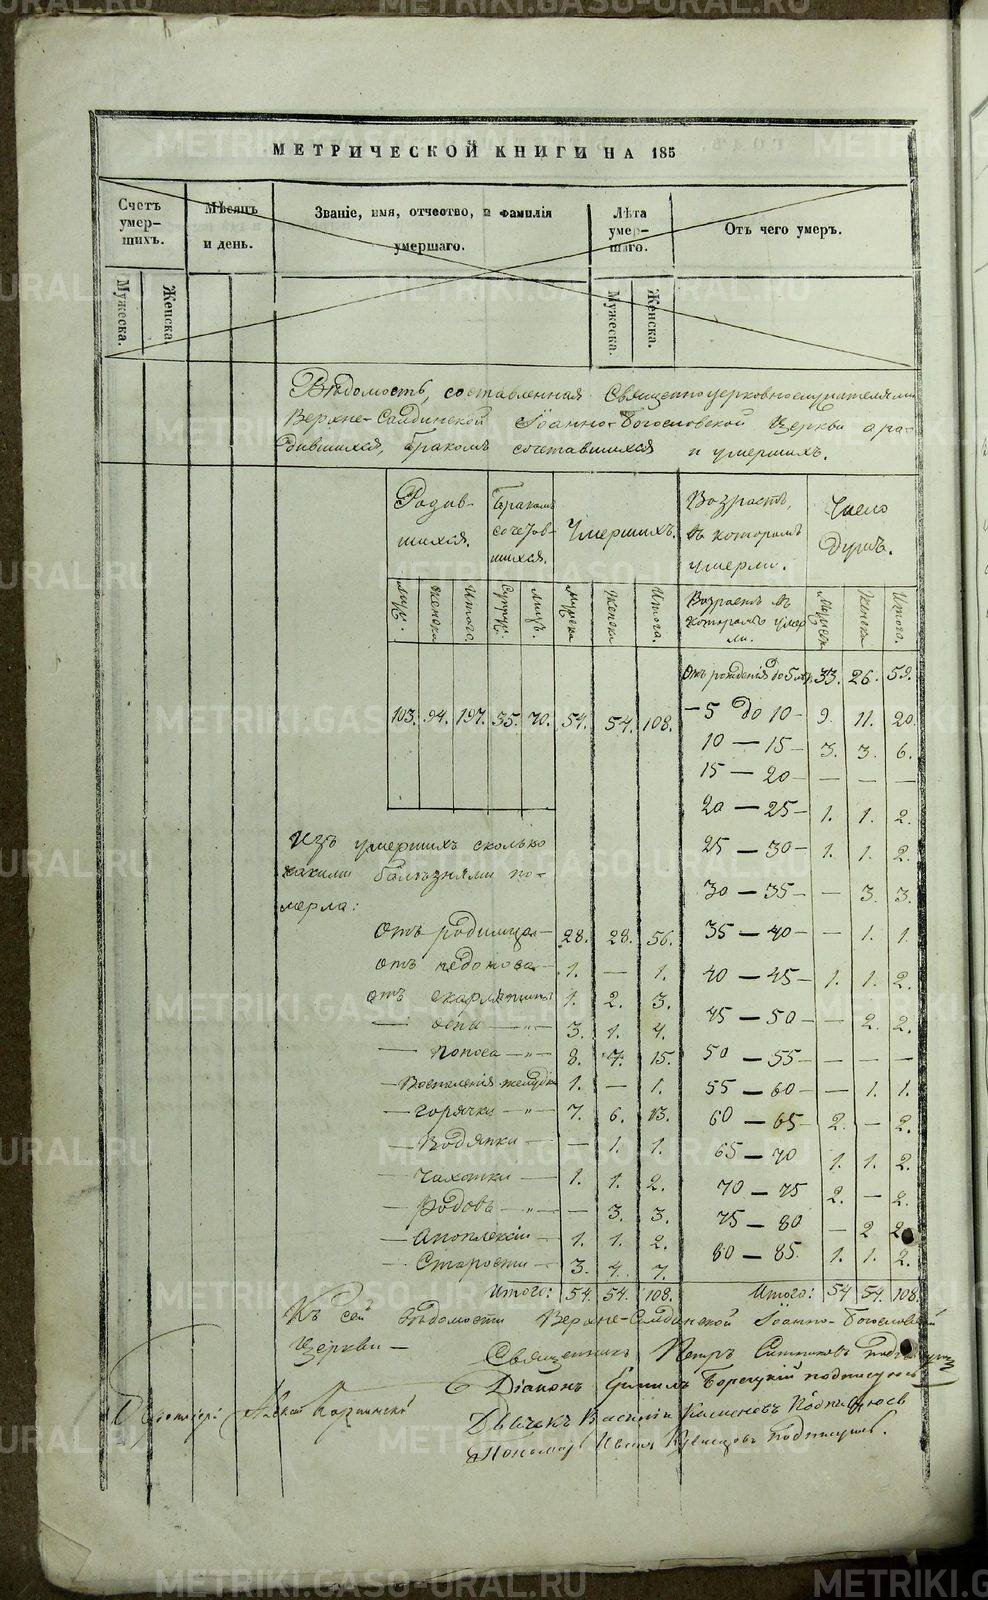 МЕТРИЧЕСКОЙ КНИГИ НА 185
Счетъ умер-шихъ.
Мѣсяцъ и день.
Званіе, имя, отчество, и фамилія умершаго.
Лѣта умер-шаго.
Отъ чего умеръ.
Мужеска. Женска. Мужеска. Женска.
Вѣдомость, составленная Священноцерковнослужителями
Верхне-Салдинской Іоанно-Богословской Церкви о ро-
дившихся, бракомъ сочетавшихся и умершихъ.
Родив-шихся.
Бракомъ сочетав-шихся.
Умершихъ.
Возрастъ, въ которомъ умерли.
Число Душъ.
муж. женска итого. Супруж. лицъ. мужска женска Итого.
Возрастъ въ которомъ умер-ли.
Мужска Женска Итого.
103. 94. 197. 35. 70. 54. 54. 108.
Отъ рожденія до 5 лѣт. 33. 26. 59.
5 до 10 9. 11. 20.
10 — 15 3. 3. 6.
15 — 20 — — —
20 — 25 1. 1. 2.
25 — 30 1. 1. 2.
30 — 35 — 3. 3.
35 — 40 — 1. 1.
40 — 45 1. 1. 2.
45 — 50 — 2. 2.
50 — 55 — — —
55 — 60 — 1. 1.
60 — 65 2. — 2.
65 — 70 1. 1. 2.
70 — 75 2. — 2.
75 — 80 — 2 2
80 — 85. 1. 1. 2.
Итого: 54 54. 108.
Изъ умершихъ сколько
какими болѣзнями по-
мерло:
Отъ родимца 28. 28. 56.
отъ недоноса 1. — 1.
отъ скарлятины 1. 2. 3.
— оспы — „ — 3. 1. 4.
— поноса — „ — 8. 7. 15.
— Воспаленія желудка 1. — 1.
— горячки — „ — 7. 6. 13.
— Водянки — — 1. 1.
— Чахотки — 1. 1. 2.
— Родовъ — „ — — 3. 3.
— Апоплексіи — 1. 1. 2.
— Старости — 3. 4. 7.
Итого: 54. 54. 108.
Къ сей вѣдомости Верхне-Салдинской Іоанно-Богословской
Церкви —
Священникъ Петръ Ситниковъ
Діаконъ Борецкій подписуюсь
Дьячекъ Василій Подписуюсь
Пономарь Иванъ
METRIKI.GASO-URAL.RU